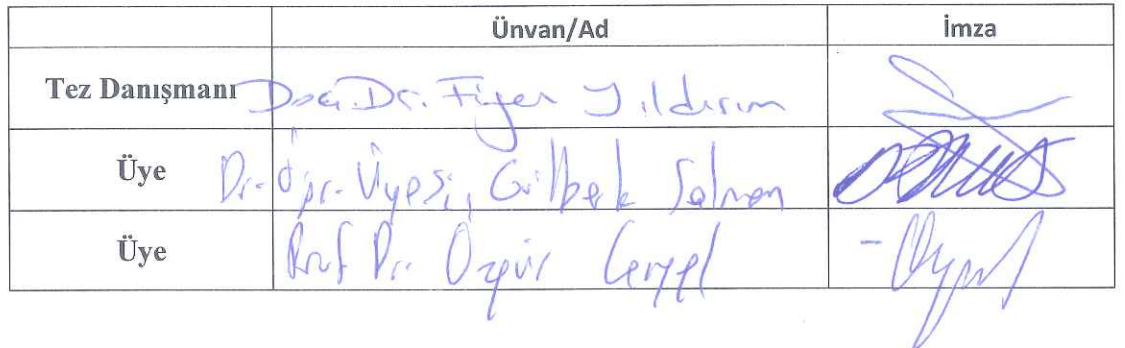 Ünvan/Ad İmza
Tez Danışmanı Doç. Dr. Figen Yıldırım
Üye Dr. Öğr. Üyesi, Salman
Üye Prof. Dr. Özgür